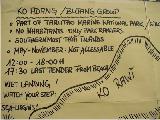 KO ADANG / BUTANG GROUP
• PART OF TARUTAO MARINE NATIONAL PARK /
• NO INHABITANTS ONLY PARK RANGERS
• SOUTHERNMOST THAI ISLANDS
• MAY - NOVEMBER: NOT ACCESSABLE
12:00 - 18:00 H
17:30 LAST TENDER FROM BEACH
WET LANDING
WATCH YOUR STEP!
KO RAWI